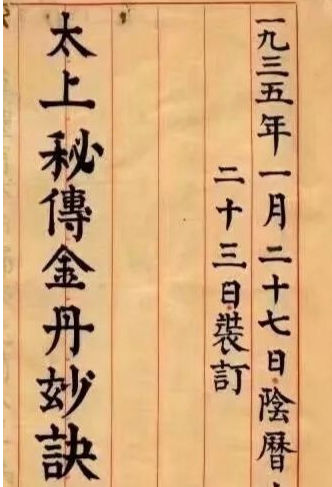 一九三五年一月二十七日陰曆
二十三日裝訂
太上秘傳金丹玅訣